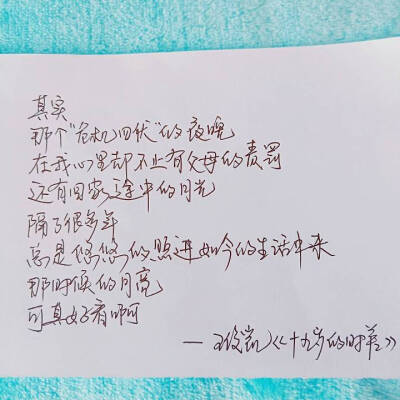 其实
那个“危机四伏”的夜晚
在我心里却不止有父母的责罚
还有回家途中的月光
隔了很多年
总是悠悠的照进如今的生活中来
那时候的月亮
可真好看啊
—王俊凯《十九岁的时差》